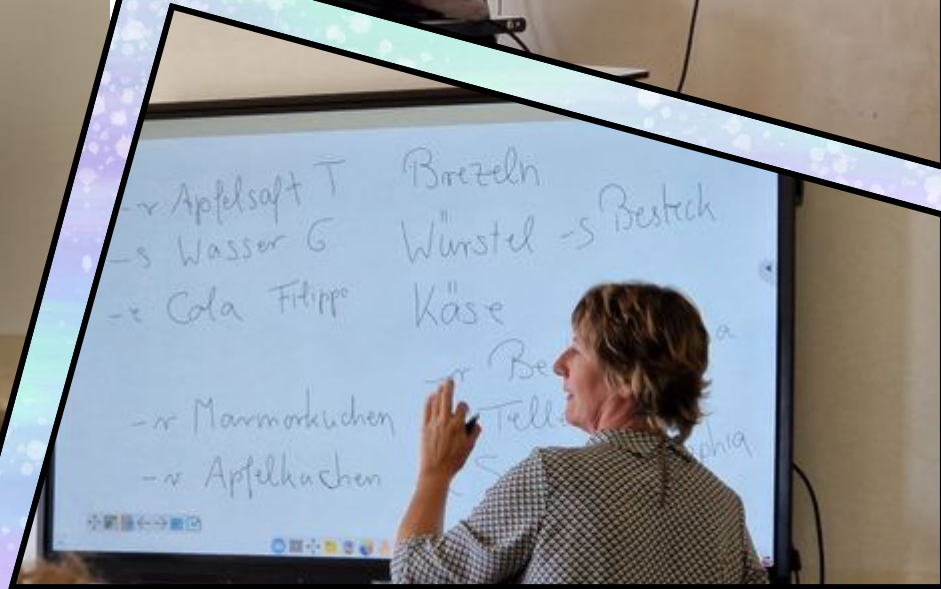 -r Apfelsaft T
-s Wasser G
-e Cola Filippo
-r Marmorkuchen
-r Apfelkuchen
Brezeln
Würstel -s Besteck
Käse
-r